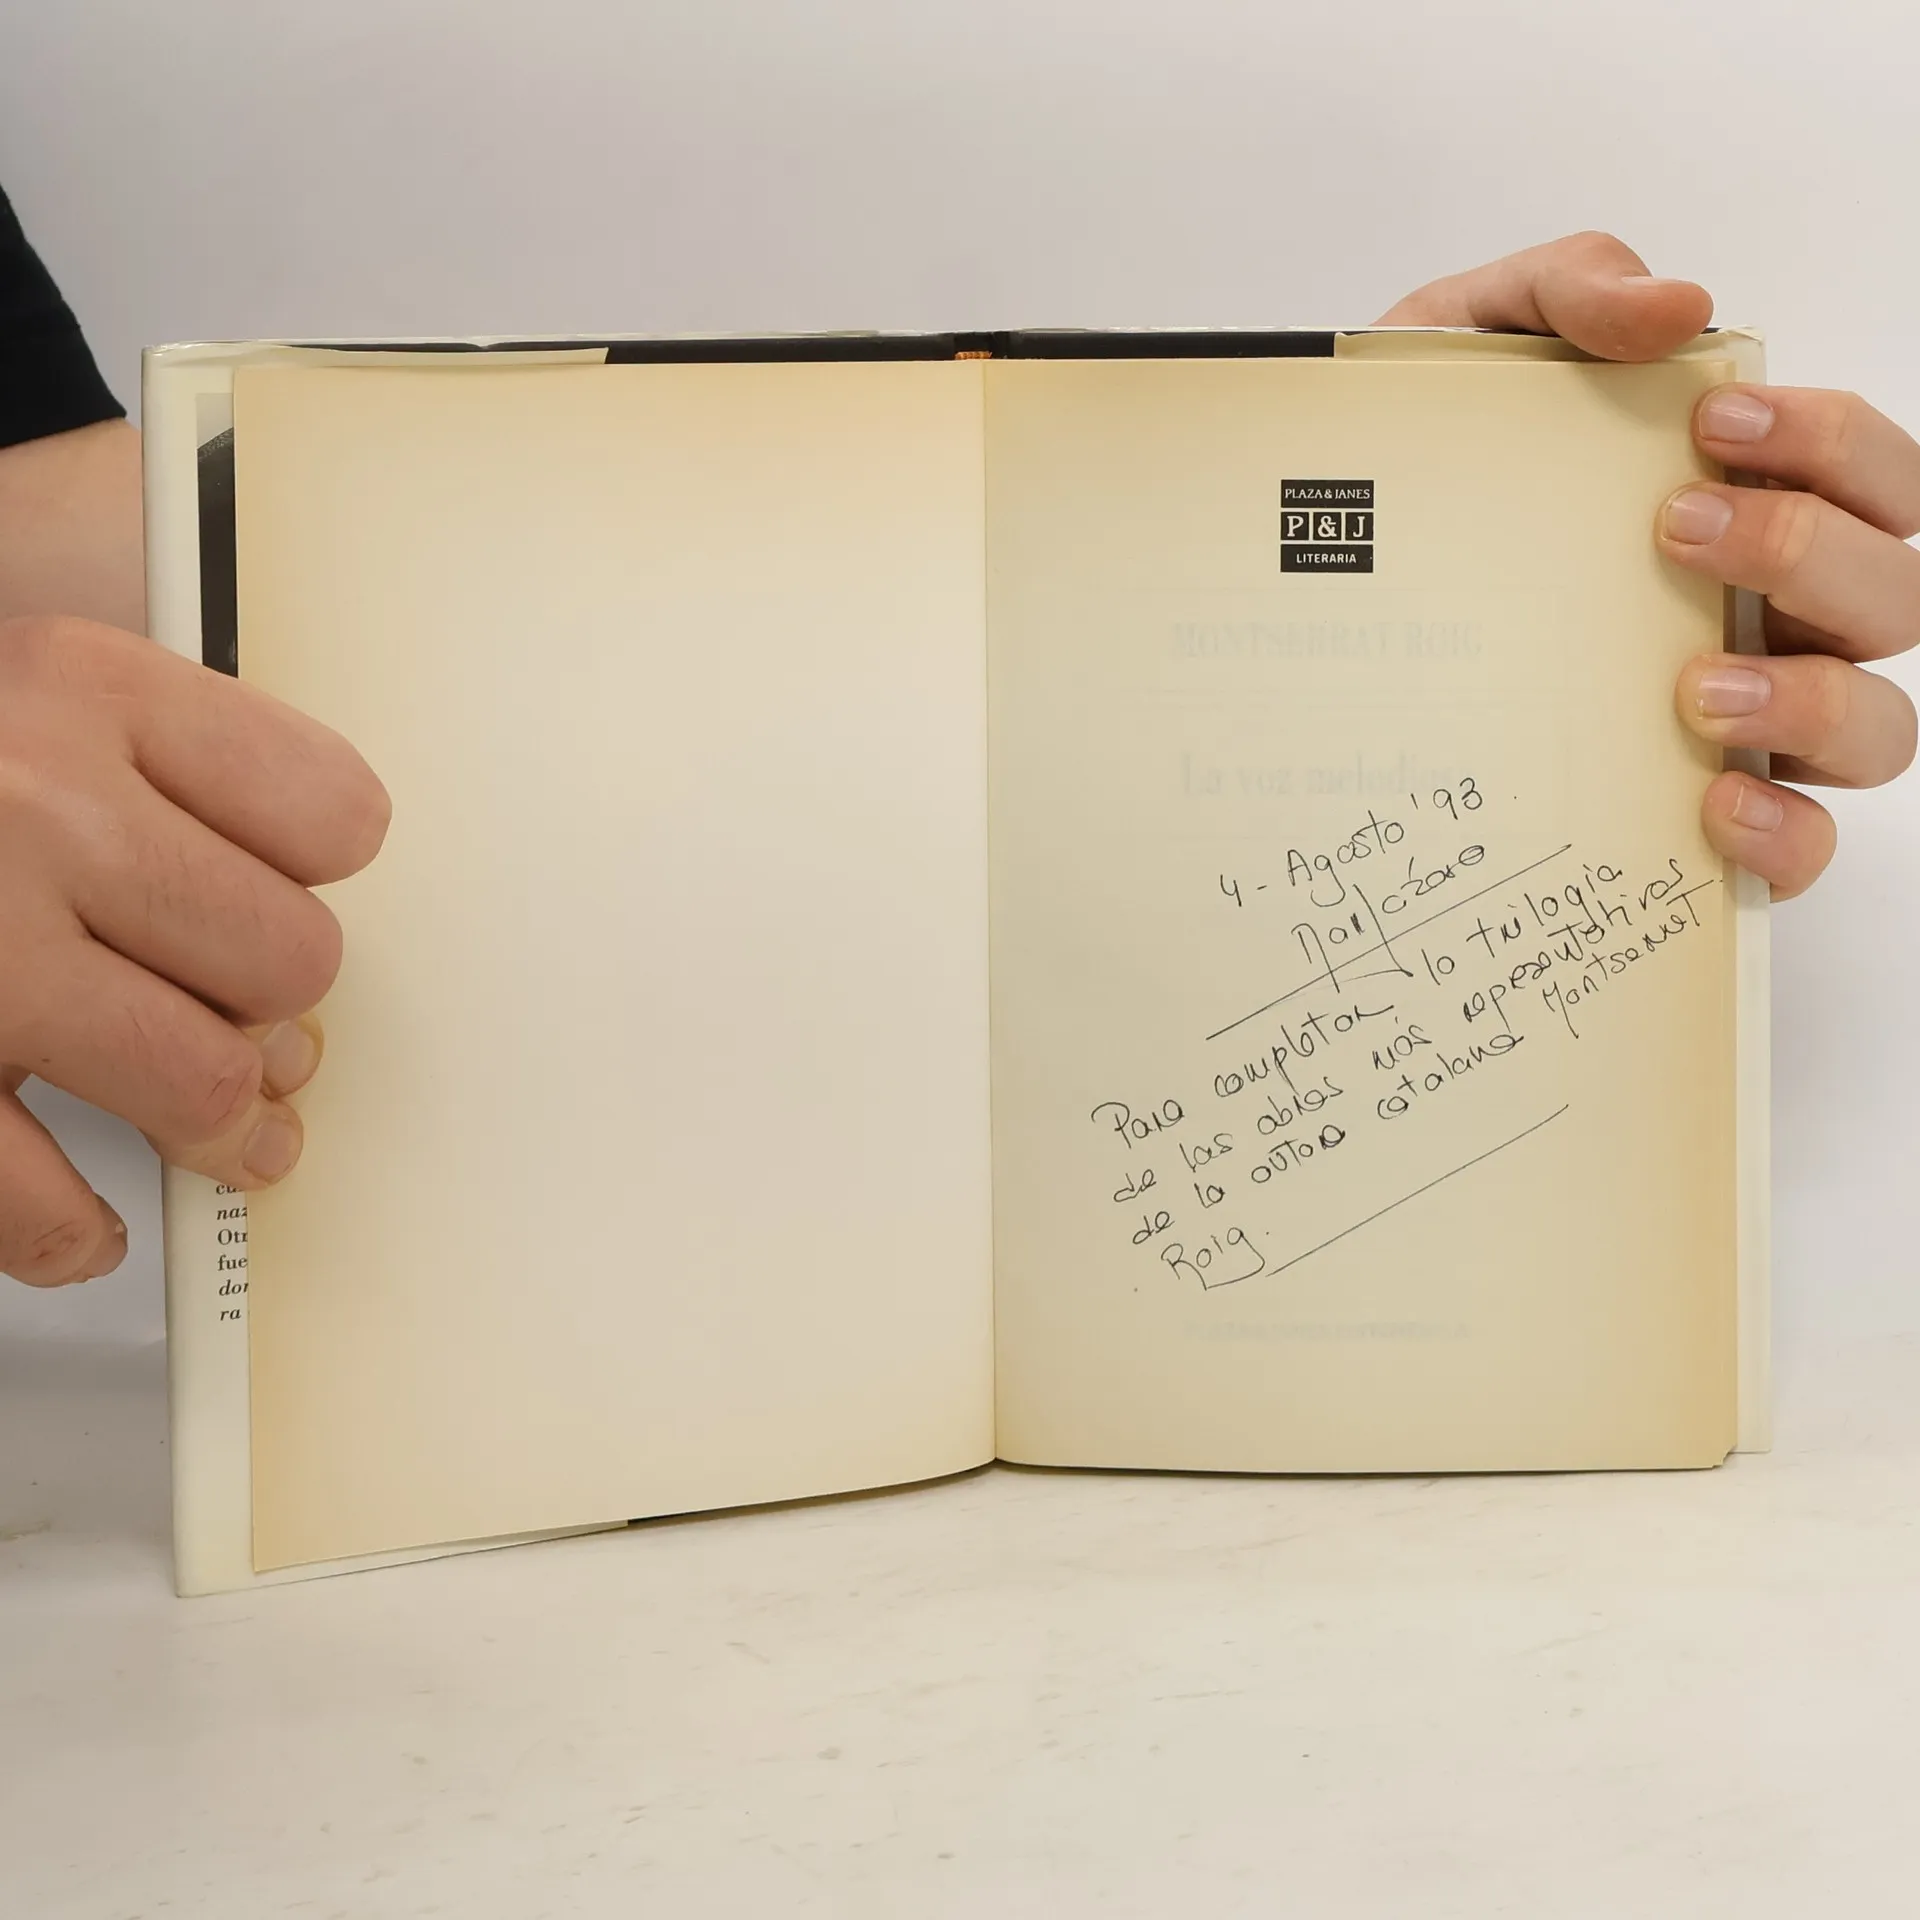 PLAZA & JANES
P & J
LITERARIA
MONTSERRAT ROIG
La voz melodiosa
4 - Agosto '93
Para completar la trilogía
de las obras más representativas
de la autora catalana Montserrat
Roig.
naz
Otr
fue
dor
ra